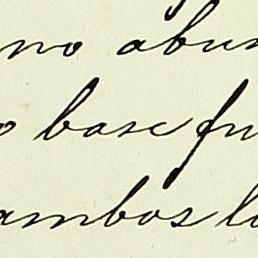 no abun
o base fu
ambos lo